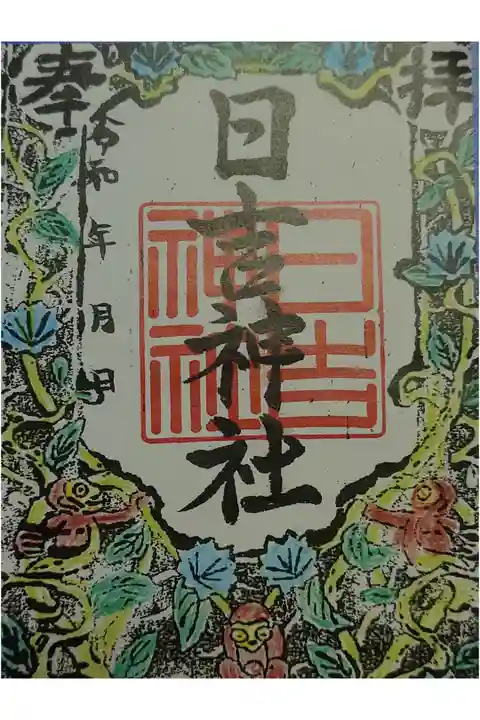 奉拝
日吉神社
日吉神社
令和 年 月 日